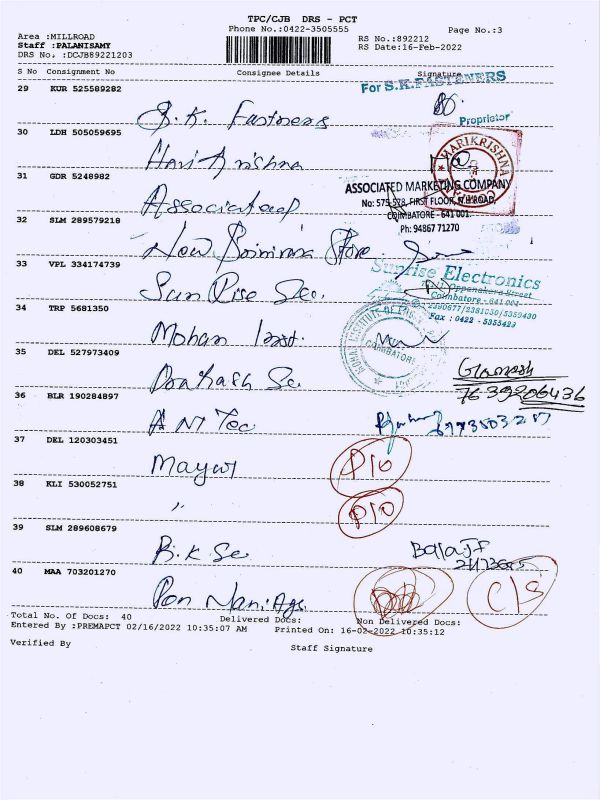 TPC/CJB DRS - PCT
Phone No.:0422-3505555
Page No.:3
Area :MILLROAD
RS No.:892212
Staff :PALANISAMY
RS Date:16-Feb-2022
DRS No. :DCJB89221203
S No Consignment No Consignee Details Signature
For S.K.FASTENERS
29 KUR 525589282
S.K. Fastners
Proprietor
30 LDH 505059695
Hari Krishna
HARIKRISHNA
31 GDR 5248982
ASSOCIATED MARKETING COMPANY
No: 575-578, FIRST FLOOR, N.H.ROAD,
COIMBATORE - 641 001.
Ph: 94867 71270
Associated
32 SLM 289579218
New Store
33 VPL 334174739
Sunrise Electronics
Oppanakara Street
Coimbatore - 641 001
2390677/2381030/5359430
Fax : 0422 - 5355429
Sun Rise Sec.
34 TRP 5681350
Mohan Inst.
COIMBATORE
35 DEL 527973409
Prakash Se
Ganesh
7639206436
36 BLR 190284897
A N Tec
37 DEL 120303451
Mayuri
P10
38 KLI 530052751
"
P10
39 SLM 289608679
R.K Se
Balaji
40 MAA 703201270
Pon Mani Ags.
C/S
Total No. Of Docs: 40 Delivered Docs: Non Delivered Docs:
Entered By :PREMAPCT 02/16/2022 10:35:07 AM Printed On: 16-02-2022 10:35:12
Verified By
Staff Signature